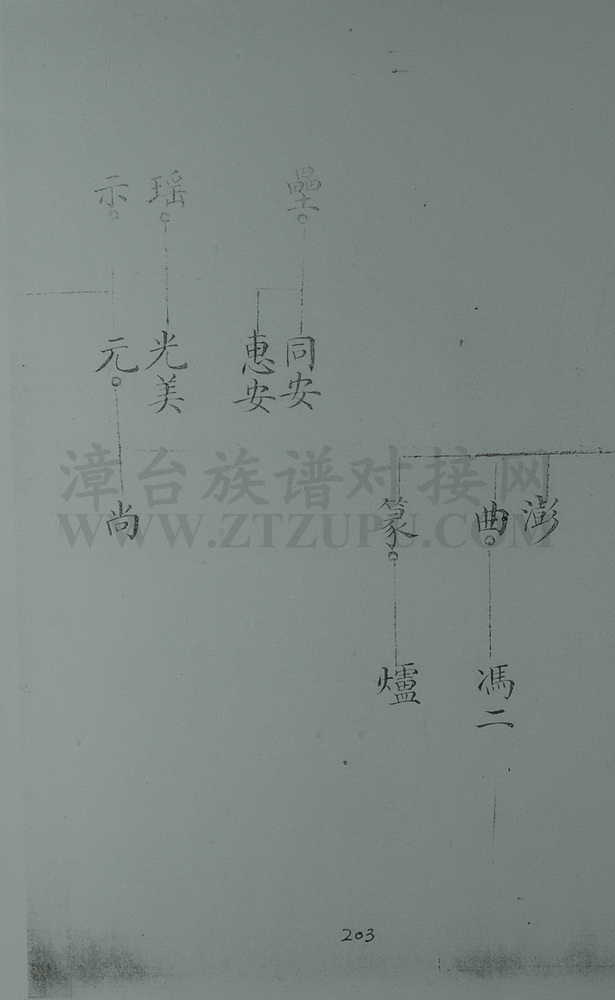 瑶
示
同安
惠安
光美
元
澎
曲
篆
尚
馮二
爐
203
漳台族谱对接网
WWW.ZTZUPU.COM